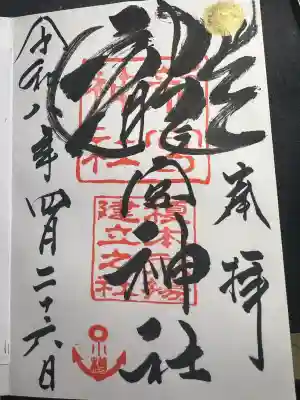 奉拝
龍宮神社
龍宮
神社
榎本武揚
建立之社
小樽
令和八年四月二十六日